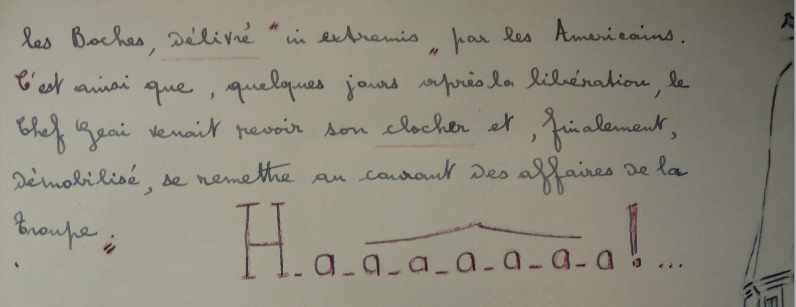 les Boches, Délivré "in extremis" par les Americains.
C'est ainsi que, quelques jours après la libération, le
Chef Geai venait revoir son clocher et, finalement,
Démobilisé, se remettre au courant Des affaires De la
Troupe."
H_a_a_a_a_a_a_a!...